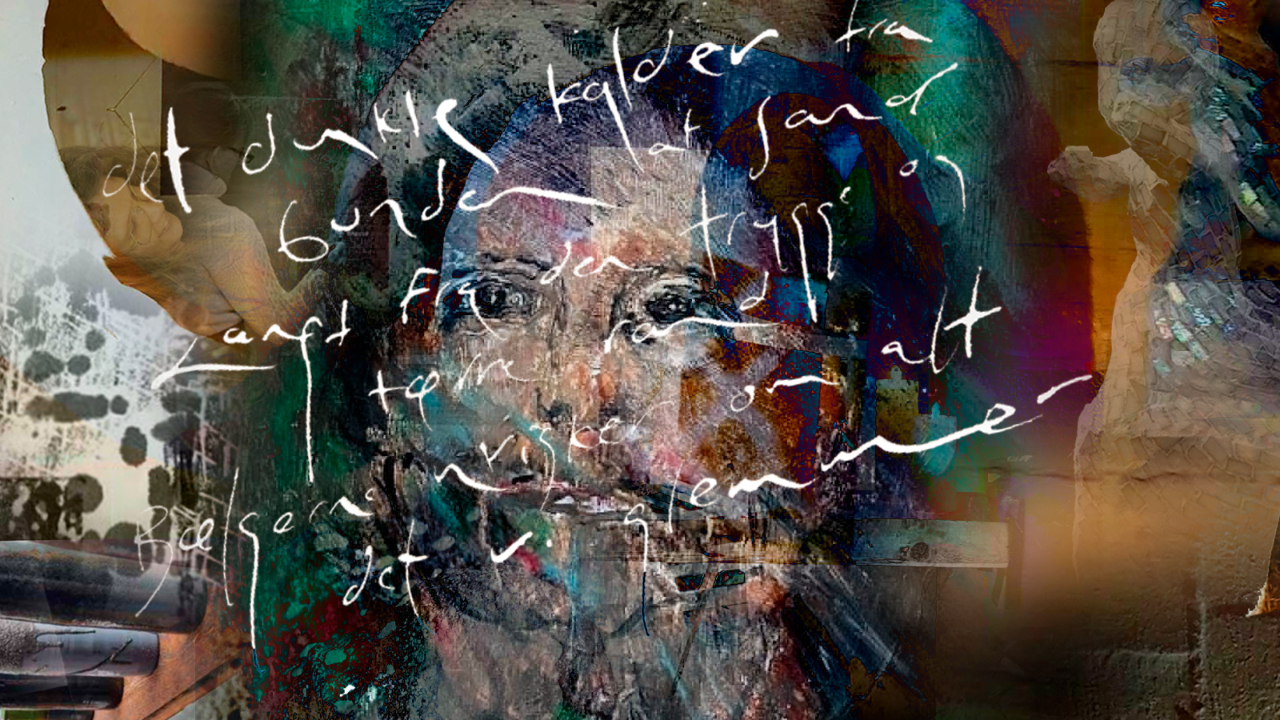 det dunkle kalder fra
bunden af sand
Langt fra den trygge og
tørre rand
Bølgerne hvisker om alt
det vi glemmer